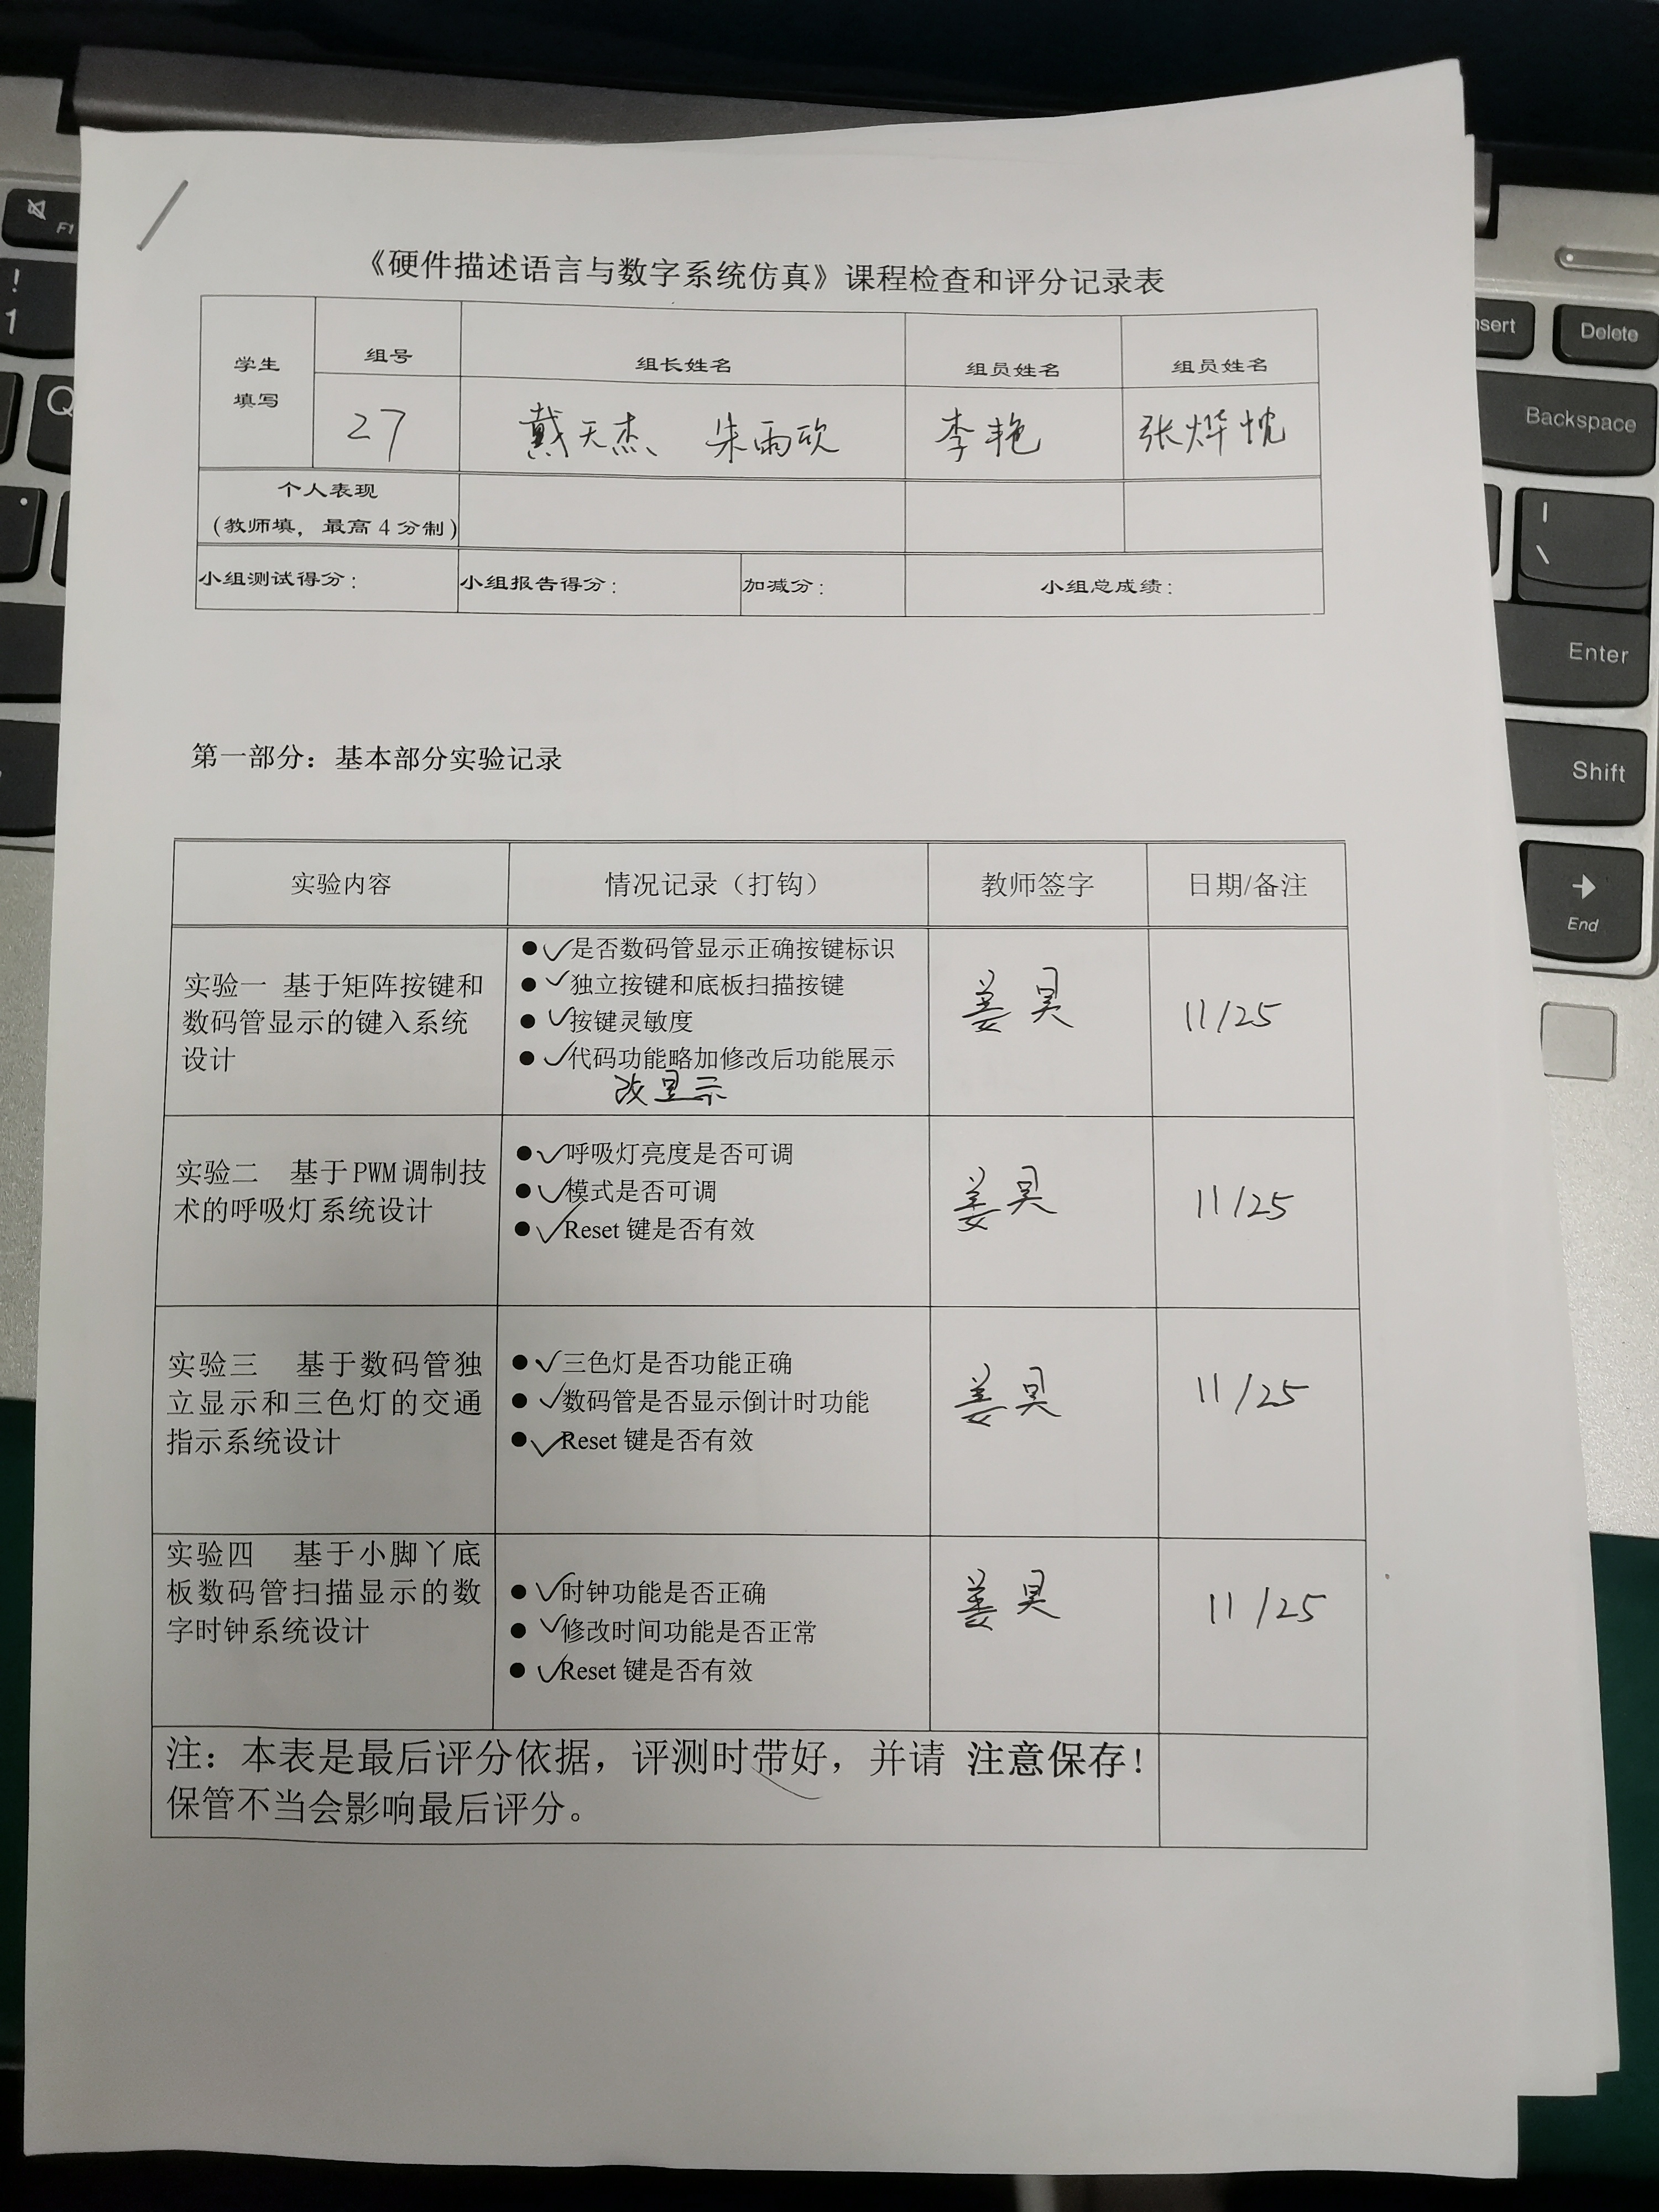 《硬件描述语言与数字系统仿真》课程检查和评分记录表
学生填写 组号 组长姓名 组员姓名 组员姓名
27 戴天杰、朱雨欣 李艳 张烨忱
个人表现
（教师填，最高4分制）
小组测试得分： 小组报告得分： 加减分： 小组总成绩：
第一部分：基本部分实验记录
实验内容 情况记录（打钩） 教师签字 日期/备注
实验一 基于矩阵按键和
数码管显示的键入系统
设计
● ✓是否数码管显示正确按键标识
● ✓独立按键和底板扫描按键
● ✓按键灵敏度
● ✓代码功能略加修改后功能展示
改显示
姜昊
11/25
实验二 基于PWM调制技
术的呼吸灯系统设计
● ✓呼吸灯亮度是否可调
● ✓模式是否可调
● ✓Reset 键是否有效
姜昊
11/25
实验三 基于数码管独
立显示和三色灯的交通
指示系统设计
● ✓三色灯是否功能正确
● ✓数码管是否显示倒计时功能
● ✓Reset 键是否有效
姜昊
11/25
实验四 基于小脚丫底
板数码管扫描显示的数
字时钟系统设计
● ✓时钟功能是否正确
● ✓修改时间功能是否正常
● ✓Reset 键是否有效
姜昊
11/25
注：本表是最后评分依据，评测时带好，并请 注意保存！
保管不当会影响最后评分。
F1
!
1
Q
Delete
Backspace
|
\
Enter
Shift
End